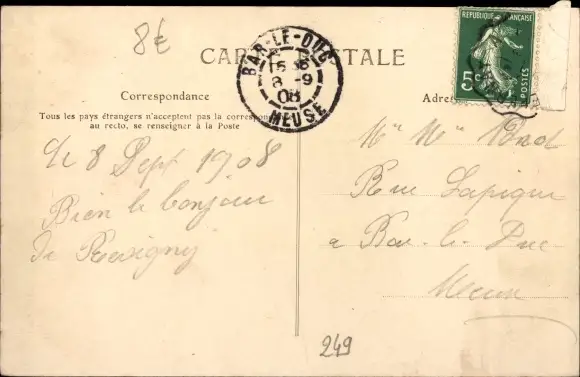 8€
CARTE POSTALE
BAR-LE-DUC
15
8 -9
08
MEUSE
RÉPUBLIQUE FRANÇAISE
5c
POSTES
Correspondance
Tous les pays étrangers n'acceptent pas la correspon
au recto, se renseigner à la Poste
Le 8 Sept 1908
Bien le bonjour
de Revigny
Adres
Rue Lapique
a Bar-le-Duc
Meuse
249